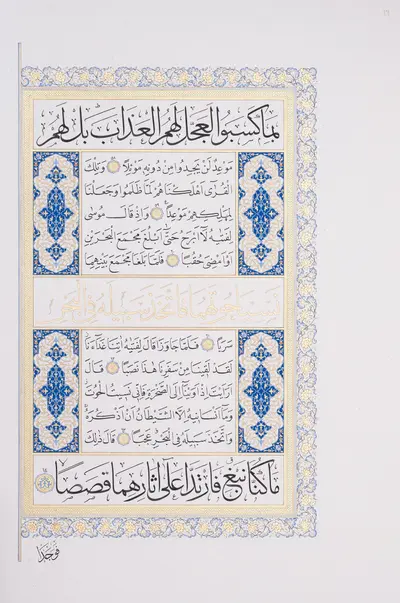 بِمَا كَسَبُوا لَعَجَّلَ لَهُمُ الْعَذَابَ بَلْ لَهُمْ
مَوْعِدٌ لَنْ يَجِدُوا مِنْ دُونِهِ مَوْئِلًا وَتِلْكَ
الْقُرَى أَهْلَكْنَاهُمْ لَمَّا ظَلَمُوا وَجَعَلْنَا
لِمَهْلِكِهِمْ مَوْعِدًا وَإِذْ قَالَ مُوسَى
لِفَتَيهُ لَا أَبْرَحُ حَتَّى أَبْلُغَ مَجْمَعَ الْبَحْرَيْنِ
أَوْ أَمْضِيَ حُقُبًا فَلَمَّا بَلَغَا مَجْمَعَ بَيْنِهِمَا
نَسِيَا حُوتَهُمَا فَاتَّخَذَ سَبِيلَهُ فِي الْبَحْرِ
سَرَبًا فَلَمَّا جَاوَزَا قَالَ لِفَتَيهُ آتِنَا غَدَاءَنَا
لَقَدْ لَقِينَا مِنْ سَفَرِنَا هَذَا نَصَبًا قَالَ
أَرَأَيْتَ إِذْ أَوَيْنَا إِلَى الصَّخْرَةِ فَإِنِّي نَسِيتُ الْحُوتَ
وَمَا أَنْسَانِيهُ إِلَّا الشَّيْطَانُ أَنْ أَذْكُرَهُ
وَاتَّخَذَ سَبِيلَهُ فِي الْبَحْرِ عَجَبًا قَالَ ذَلِكَ
مَا كُنَّا نَبْغِ فَارْتَدَّا عَلَى آثَارِهِمَا قَصَصًا
فوجدا